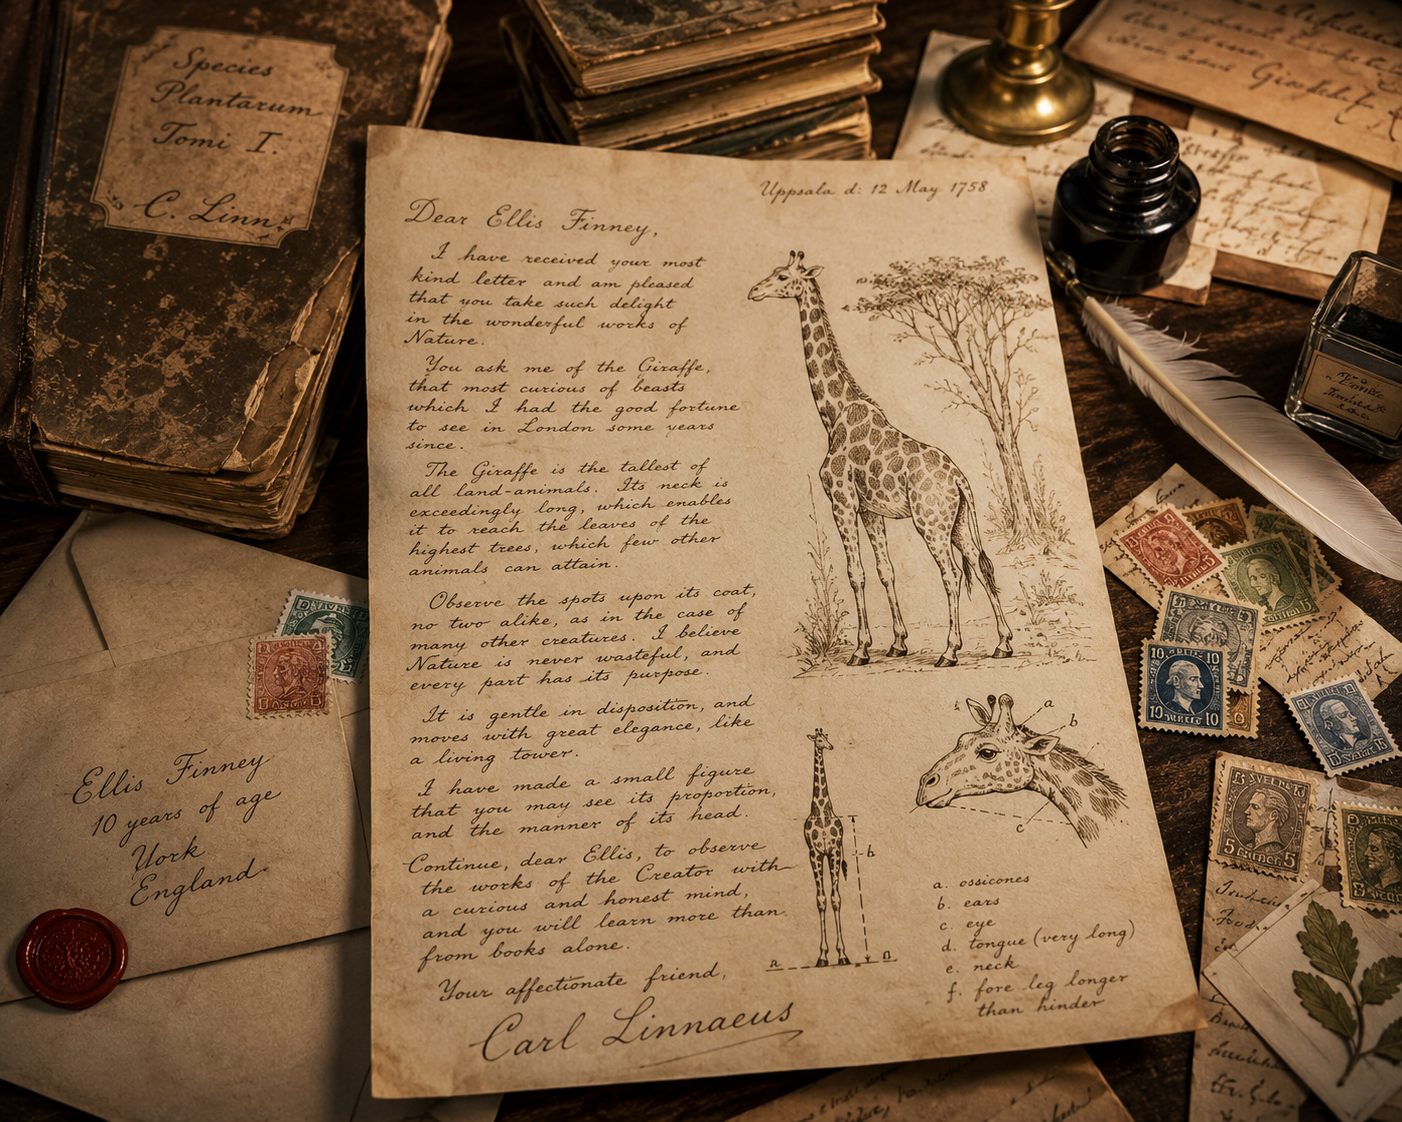 Species
Plantarum
Tomi I.
C. Linn.
Uppsala d: 12 May 1758
Dear Ellis Finney,
I have received your most
kind letter and am pleased
that you take such delight
in the wonderful works of
Nature.
You ask me of the Giraffe,
that most curious of beasts
which I had the good fortune
to see in London some years
since.
The Giraffe is the tallest of
all land-animals. Its neck is
exceedingly long, which enables
it to reach the leaves of the
highest trees, which few other
animals can attain.
Observe the spots upon its coat,
no two alike, as in the case of
many other creatures. I believe
Nature is never wasteful, and
every part has its purpose.
It is gentle in disposition, and
moves with great elegance, like
a living tower.
I have made a small figure
that you may see its proportion,
and the manner of its head.
Continue, dear Ellis, to observe
the works of the Creator with
a curious and honest mind,
and you will learn more than
from books alone.
Your affectionate friend,
Carl Linnaeus
a
b
c
h
a. ossicones
b. ears
c. eye
d. tongue (very long)
e. neck
f. fore leg longer
than hinder
Ellis Finney
10 years of age
York
England.
10 10
10 10
5 5